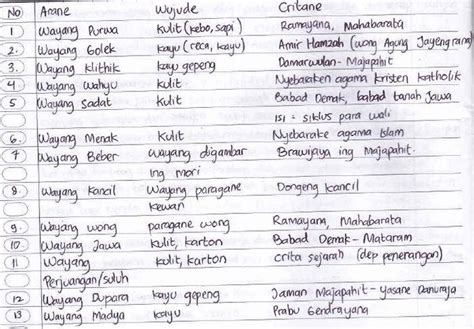 No Arane Wujude Critane
1 Wayang Purwa kulit (kebo, sapi) Ramayana, Mahabarata
2. Wayang Golek kayu (reca, kayu) Amir Hamzah (wong Agung Jayengrana)
3. Wayang Klithik kayu gepeng Damarwulan - Majapahit
4 Wayang wahyu kulit Nyebaraken agama kristen katholik
5 Wayang Sadat kulit Babad Demak, babad tanah Jawa
isi = siklus para wali
6. Wayang Menak Kulit Nyebarake agama Islam
7 Wayang Beber Wayang digambar Brawijaya ing Majapahit.
ing mori
8. Wayang Kancil Wayang paragane Dongeng kancil
kewan
9. Wayang wong paragane wong Ramayana, Mahabarata
10 Wayang Jawa kulit, karton Babad Demak - Mataram
11 Wayang kulit, karton crita sejarah (dep penerangan)
Perjuangan/suluh
12 Wayang Dupara kayu gepeng Jaman Majapahit - yasane Danuraja
13 Wayang Madya kayu Prabu Gendrayana